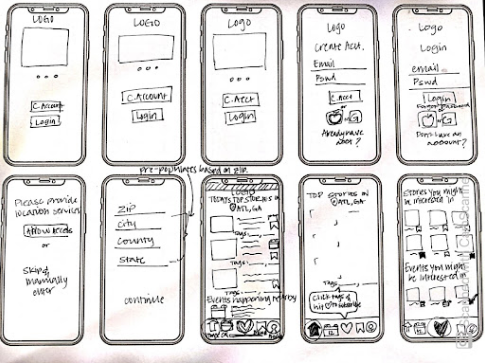 LOGO
C. Account
Login
LOGO
C. Account
Login
Logo
C. Acct
Login
Logo
Create Acct.
Email
Pswd
C. Acct
or
G
Already have
Logo
Login
email
Pswd
Login
Forgot Password
or G
Don't have an
account?
Please provide
location services
Allow Access
or
Skip &
manually
enter
pre-populates based on zip
Zip
City
County
State
continue
LOGO
TODAYS TOP STORIES IN
ATL, GA
Tags
Tags
Tags
Events happening nearby
TOP STORIES IN
ATL, GA
Tags
Click tags &
hit to
Stories you might
be interested in
Events you might
be interested in
CamScanner